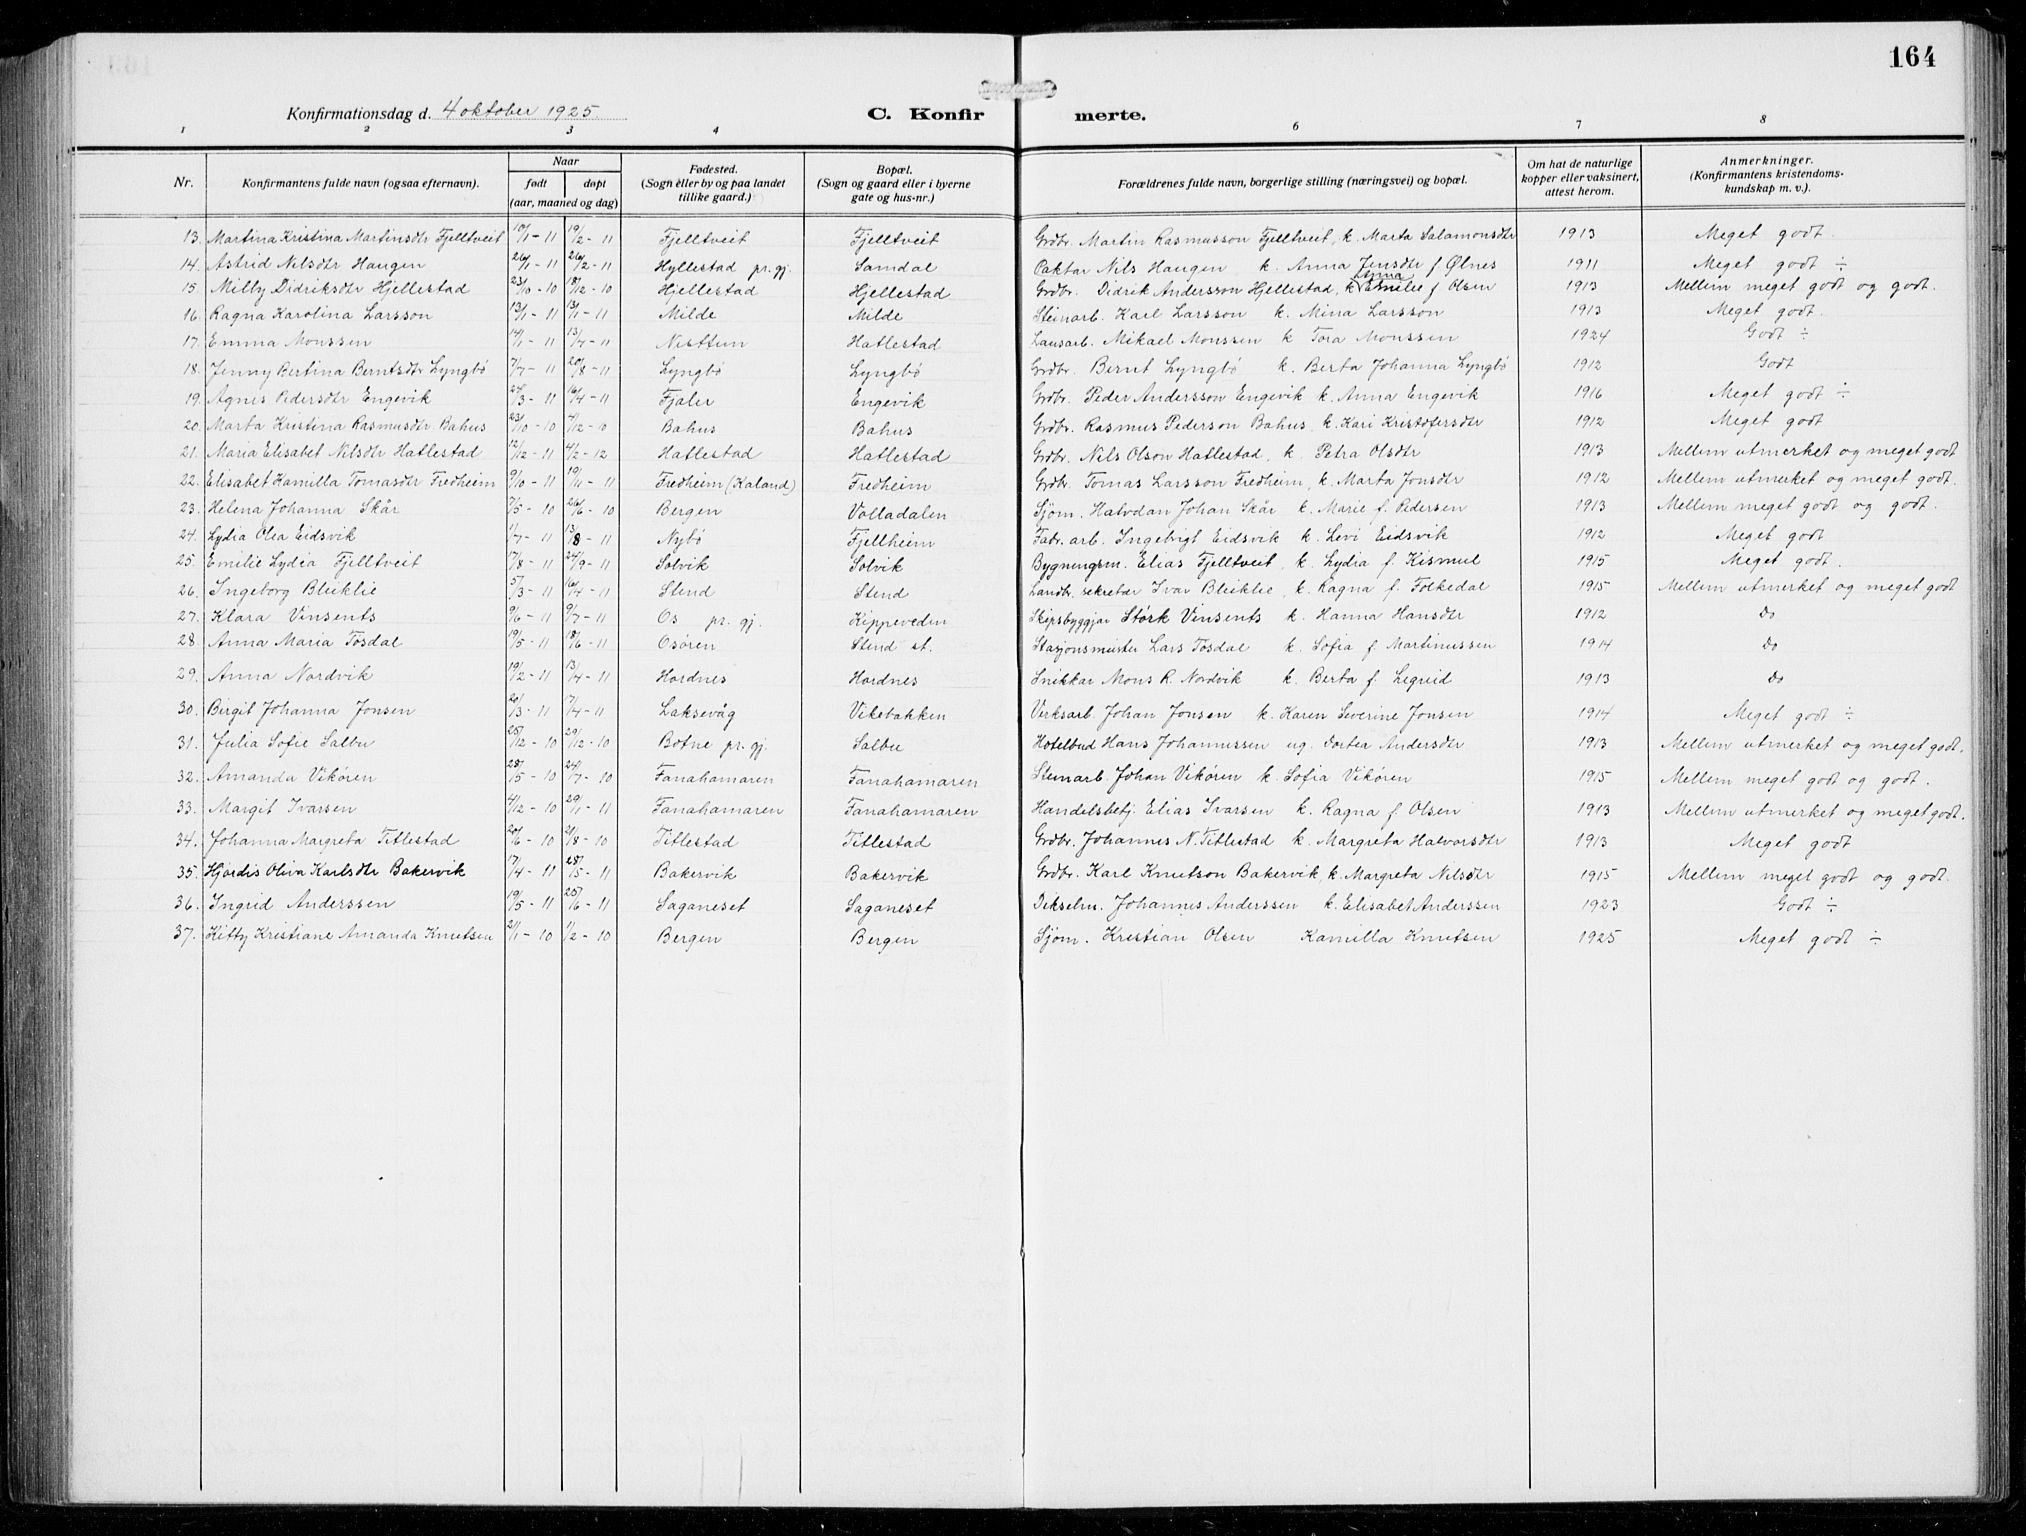 164
Konfirmationsdag d. 4 oktober 1925.
C. Konfirmerte.
1 2 3 4 6 7 8
Nr. Konfirmantens fulde navn (ogsaa efternavn). Naar født døpt (aar, maaned og dag) Fødested. (Sogn eller by og paa landet tillike gaard.) Bopæl. (Sogn og gaard eller i byerne gate og hus-nr.) Forældrenes fulde navn, borgerlige stilling (næringsvei) og bopæl. Om hat de naturlige kopper eller vaksinert, attest herom. Anmerkninger. (Konfirmantens kristendomskundskap m. v.).
13. Martina Kristina Martinsdtr Fjelltveit 10/1 - 11 19/2 - 11 Fjelltveit Fjelltveit Grdbr. Martin Rasmusson Fjelltveit, k. Marta Salamonsdtr 1913 Meget godt.
14. Astrid Nilsdtr Haugen 26/1 - 11 26/2 - 11 Hyllestad pr. gj. Samdal Nils Haugen k. Anna Jensdtr f. Ølnes 1911 Meget godt ÷
15. Milly Didriksdtr Hjellestad 23/10 - 10 18/12 - 10 Hjellestad Hjellestad Grdbr. Didrik Andersson Hjellestad, k. Anna Emilie f Olsen 1913 Mellem meget godt og godt.
16. Ragna Karolina Larsson 13/1 - 11 - 11 Milde Milde Steinarb. Karl Larsson k. Mina Larsson 1913 Meget godt.
17. Emma Monssen 14/1 - 11 13/7 - 11 Nesttun Hatlestad Lausarb. Mikael Monssen k Tora Monssen 1924 Godt ÷
18. Jenny Bertina Berntsdtr Lyngbö 7/7 - 11 20/8 - 11 Lyngbö Lyngbö Grdbr. Bernt Lyngbö k. Berta Johanna Lyngbö 1912 Godt
19. Agnes Pedersdtr Engevik 24/3 - 11 16/4 - 11 Fjaler Engevik Grdbr. Peder Andersson Engevik k. Anna Engevik 1916 Meget godt ÷
20. Marta Kristina Rasmusdtr Bahus 23/10 - 10 4/12 - 10 Bahus Bahus Grdbr. Rasmus Pederson Bahus, k. Kari Kristofersdtr 1912 Meget godt
21. Maria Elisabet Nilsdtr Hatlestad 12/12 - 11 4/2 - 12 Hatlestad Hatlestad Grdbr. Nils Olson Hatlestad, k. Petra Olsdtr 1913 Mellem utmerket og meget godt
22. Elisabet Kamilla Tomasdtr Fredheim 9/10 - 11 19/11 - 11 Fredheim (Kaland) Fredheim Grdbr. Tomas Larsson Fredheim, k. Marta Jonsdtr 1912 Mellem utmerket og meget godt.
23. Helena Johanna Skår 7/5 - 10 26/6 - 10 Bergen Valladalen Sjöm. Halvdan Johan Skår k. Marie f. Pedersen 1913 Mellem meget godt og godt.
24. Lydia Olea Eidsvik 1/7 - 11 13/8 - 11 Nybö Fjellheim Fabr. arb. Ingebrigt Eidsvik k. Levi Eidsvik 1912 Meget godt
25. Emilie Lydia Fjelltveit 17/8 - 11 24/9 - 11 Solvik Solvik Bygningsm. Elias Fjelltveit, k. Lydia f. Kismul 1915 Meget godt.
26. Ingeborg Bleiklie 5/3 - 11 16/4 - 11 Stend Stend Landbr. sekretær Ivar Bleiklie, k. Ragna f. Folkedal 1915 Mellem utmerket og meget godt
27. Klara Vinsents 9/6 - 11 9/7 - 11 Os pr. gj. Kippeveden Skipsbyggjar Störk Vinsents k. Hanna Hansdtr 1912 Do
28. Anna Maria Tösdal 19/5 - 11 18/6 - 11 Osören Stend st. Stasjonsmeister Lars Tösdal k. Sofia f Martinussen 1914 Do
29. Anna Nordvik 19/2 - 11 13/4 - 11 Hordnes Hordnes Snikkar Mons R. Nordvik k. Berta f. Legreid 1913 Do
30. Birgit Johanna Jonsen 20/3 - 11 17/4 - 11 Laksevåg Viketakken Verksarb. Johan Jonsen k. Karen Severine Jonsen 1914 Meget godt ÷
31. Julia Sofie Salbu 25/12 - 10 29/12 - 10 Botne pr. gj. Salbu Hotelbud Hans Johannessen ug. Dortea Andersdtr 1913 Mellem utmerket og meget godt.
32. Amanda Vikören 28/5 - 10 24/7 - 10 Fanahamaren Fanahamaren Steinarb. Johan Vikören k. Sofia Vikören 1915 Mellem meget godt og godt.
33. Margit Ivarsen 4/12 - 10 29/1 - 11 Fanahamaren Fanahamaren Handelsbetj. Elias Ivarsen k. Ragna f. Olsen 1913 Mellem utmerket og meget godt.
34. Johanna Margreta Titlestad 20/6 - 10 21/8 - 10 Titlestad Titlestad Grdbr. Johannes N. Titlestad k. Margreta Halvorsdtr 1913 Meget godt
35. Hjördis Oliva Karlsdtr Bakervik 17/4 - 11 28/5 - 11 Bakervik Bakervik Grdbr. Karl Knutson Bakervik, k. Margreta Nilsdtr 1915 Mellem meget godt og godt.
36. Ingrid Anderssen 19/5 - 11 25/6 - 11 Saganeset Saganeset Dikselm. Johannes Anderssen k. Elisabet Anderssen 1923 Godt ÷
37. Kitty Kristiane Amanda Knutsen 21/1 - 10 1/2 - 10 Bergen Bergen Sjöm. Kristian Olsen Kamilla Knutsen 1925 Meget godt ÷